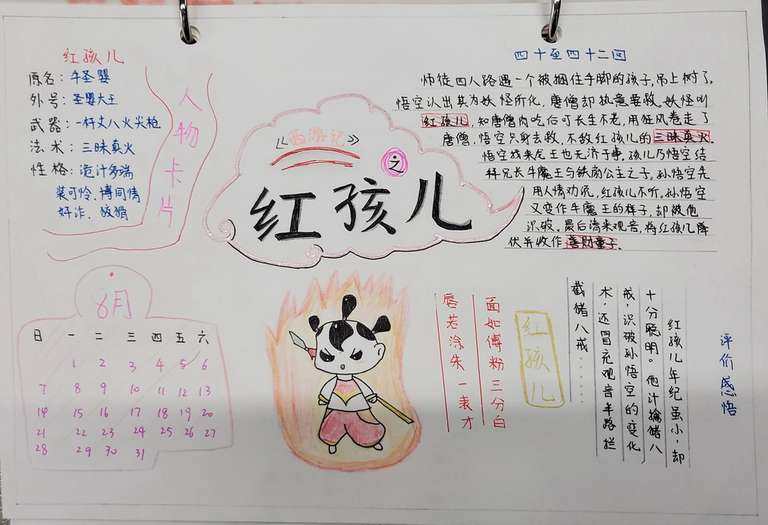 红孩儿
原名：牛圣婴
外号：圣婴大王
武器：一杆丈八火尖枪
法术：三昧真火
性格：诡计多端
装可怜、博同情
奸诈、狡猾
人物卡片
《西游记》
之
红孩儿
四十至四十二回
师徒四人路遇一个被捆住手脚的孩子，吊上树了，
悟空认出其为妖怪所化，唐僧却执意要救。妖怪叫
红孩儿，知唐僧肉吃后可长生不老，用狂风卷走了
唐僧，悟空只身去救，不敌红孩儿的三昧真火，
悟空找来龙王也无济于事，孩儿与悟空结
拜兄长牛魔王与铁扇公主之子，孙悟空先
用人情劝说，红孩儿不听，孙悟空
又变作牛魔王的样子，却被他
识破，最后请来观音，将红孩儿降
伏并收作善财童子。
8月
日 一 二 三 四 五 六
1 2 3 4 5 6
7 8 9 10 11 12 13
14 15 16 17 18 19 20
21 22 23 24 25 26 27
28 29 30 31
面如傅粉三分白
唇若涂朱一表才
红孩儿
评价感悟
红孩儿年纪虽小，却
十分聪明。他计擒猪八
戒，识破孙悟空的变化
术，还冒充观音半路拦
截猪八戒……